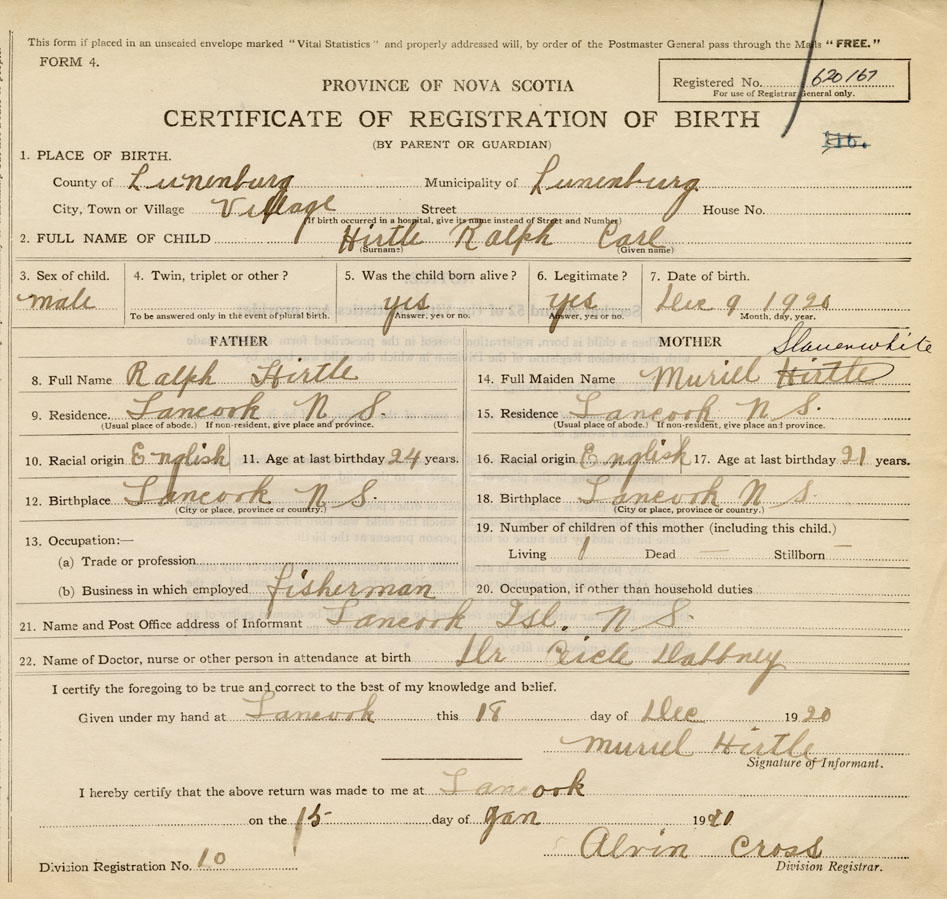 This form if placed in an unsealed envelope marked "Vital Statistics" and properly addressed will, by order of the Postmaster General pass through the Mails "FREE."
FORM 4.
Registered No. 620167
For use of Registrar General only.
PROVINCE OF NOVA SCOTIA
CERTIFICATE OF REGISTRATION OF BIRTH
(BY PARENT OR GUARDIAN)
116.
1. PLACE OF BIRTH.
County of Lunenburg Municipality of Lunenburg
City, Town or Village Village Street House No.
(If birth occurred in a hospital, give its name instead of Street and Number)
2. FULL NAME OF CHILD Hirtle Ralph Carl
(Surname) (Given name)
3. Sex of child. 4. Twin, triplet or other? 5. Was the child born alive? 6. Legitimate? 7. Date of birth.
male yes yes Dec 9 1920
To be answered only in the event of plural birth. Answer, yes or no. Answer, yes or no. Month, day, year.
FATHER MOTHER
Slauenwhite
8. Full Name Ralph Hirtle 14. Full Maiden Name Muriel Hirtle
9. Residence Tancook N S. 15. Residence Tancook N S.
(Usual place of abode.) If non-resident, give place and province. (Usual place of abode.) If non-resident, give place and province.
10. Racial origin English 11. Age at last birthday 24 years. 16. Racial origin English 17. Age at last birthday 21 years.
12. Birthplace Tancook N S. 18. Birthplace Tancook N S.
(City or place, province or country.) (City or place, province or country.)
13. Occupation:— 19. Number of children of this mother (including this child.)
Living 1 Dead — Stillborn —
(a) Trade or profession
(b) Business in which employed fisherman 20. Occupation, if other than household duties
21. Name and Post Office address of Informant Tancook Isl. N S.
22. Name of Doctor, nurse or other person in attendance at birth Dr
I certify the foregoing to be true and correct to the best of my knowledge and belief.
Given under my hand at Tancook this 18 day of Dec 1920
Muriel Hirtle
Signature of Informant.
I hereby certify that the above return was made to me at Tancook
on the 15 day of Jan 1921
Alvin Cross
Division Registration No. 10 Division Registrar.